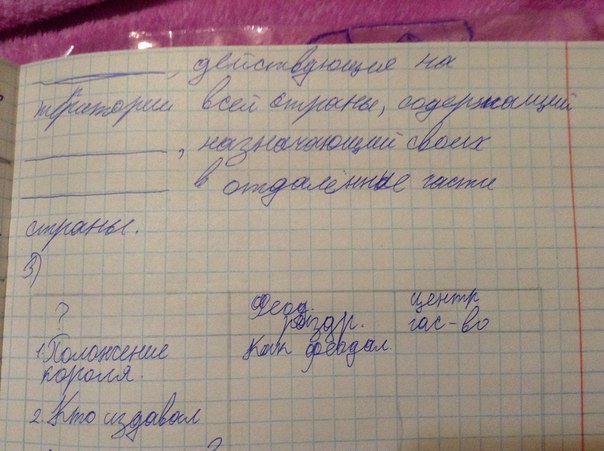 ________, действующия на
территории всей страны, содержащий
________, назначающий своих
________ в отдалённые части
страны.
3)
? Феод. раздр. центр гос-во
1. Положение короля. Как феодал.
2. Кто издавал
?